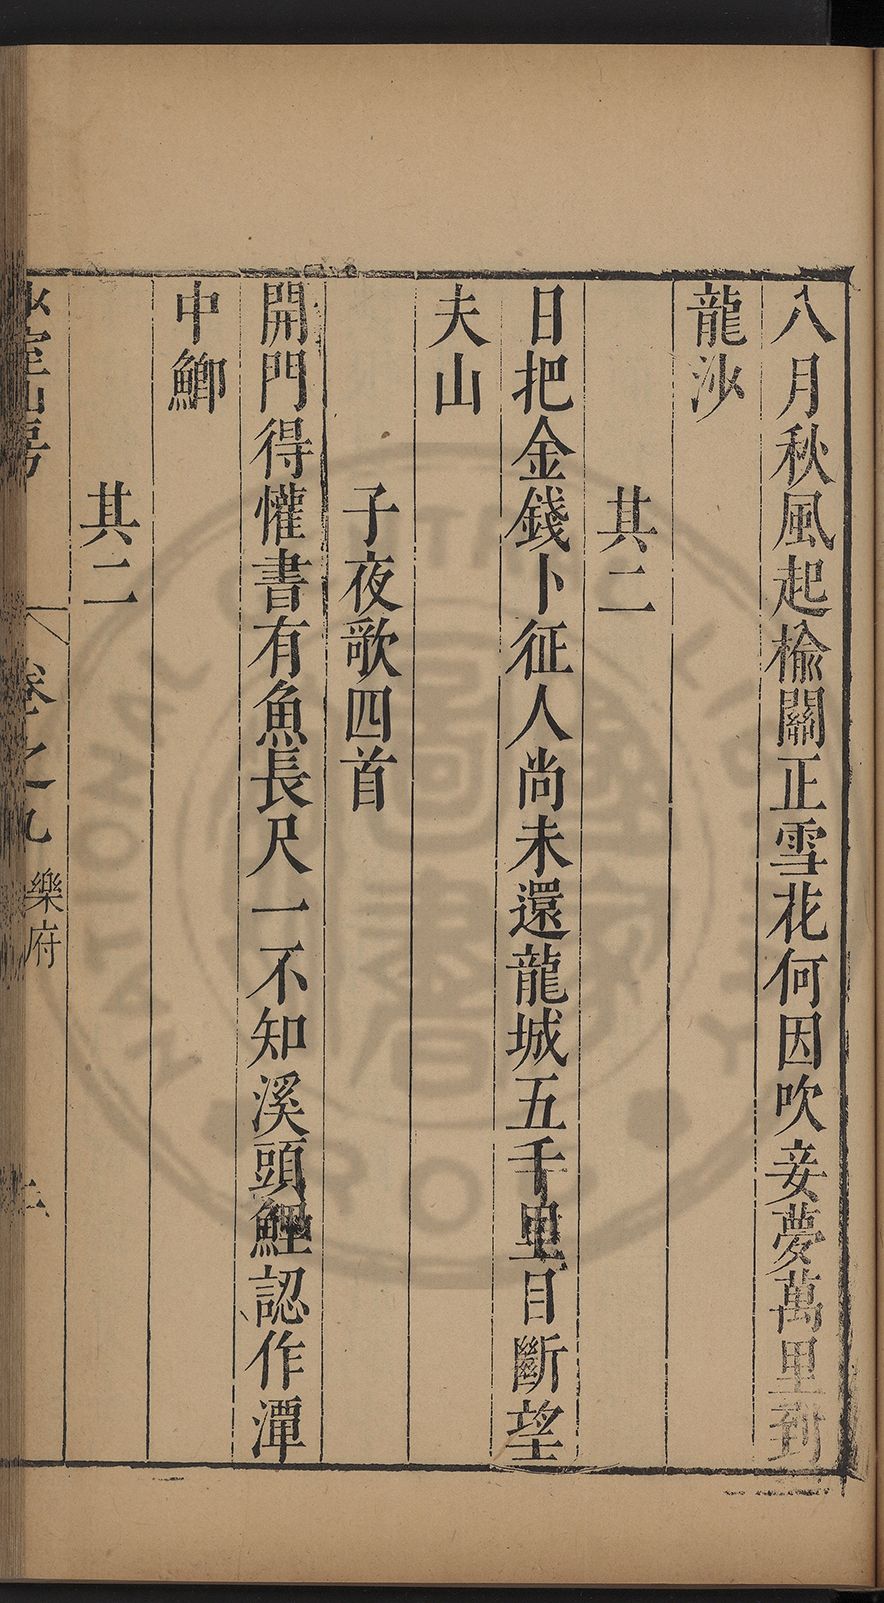 八月秋風起榆關正雪花何因吹妾夢萬里到
龍沙
其二
日把金錢卜征人尚未還龍城五千里目斷望
夫山
子夜歌四首
開門得懽書有魚長尺一不知溪頭鯉認作潭
中鯽
其二
山房
卷之九
樂府